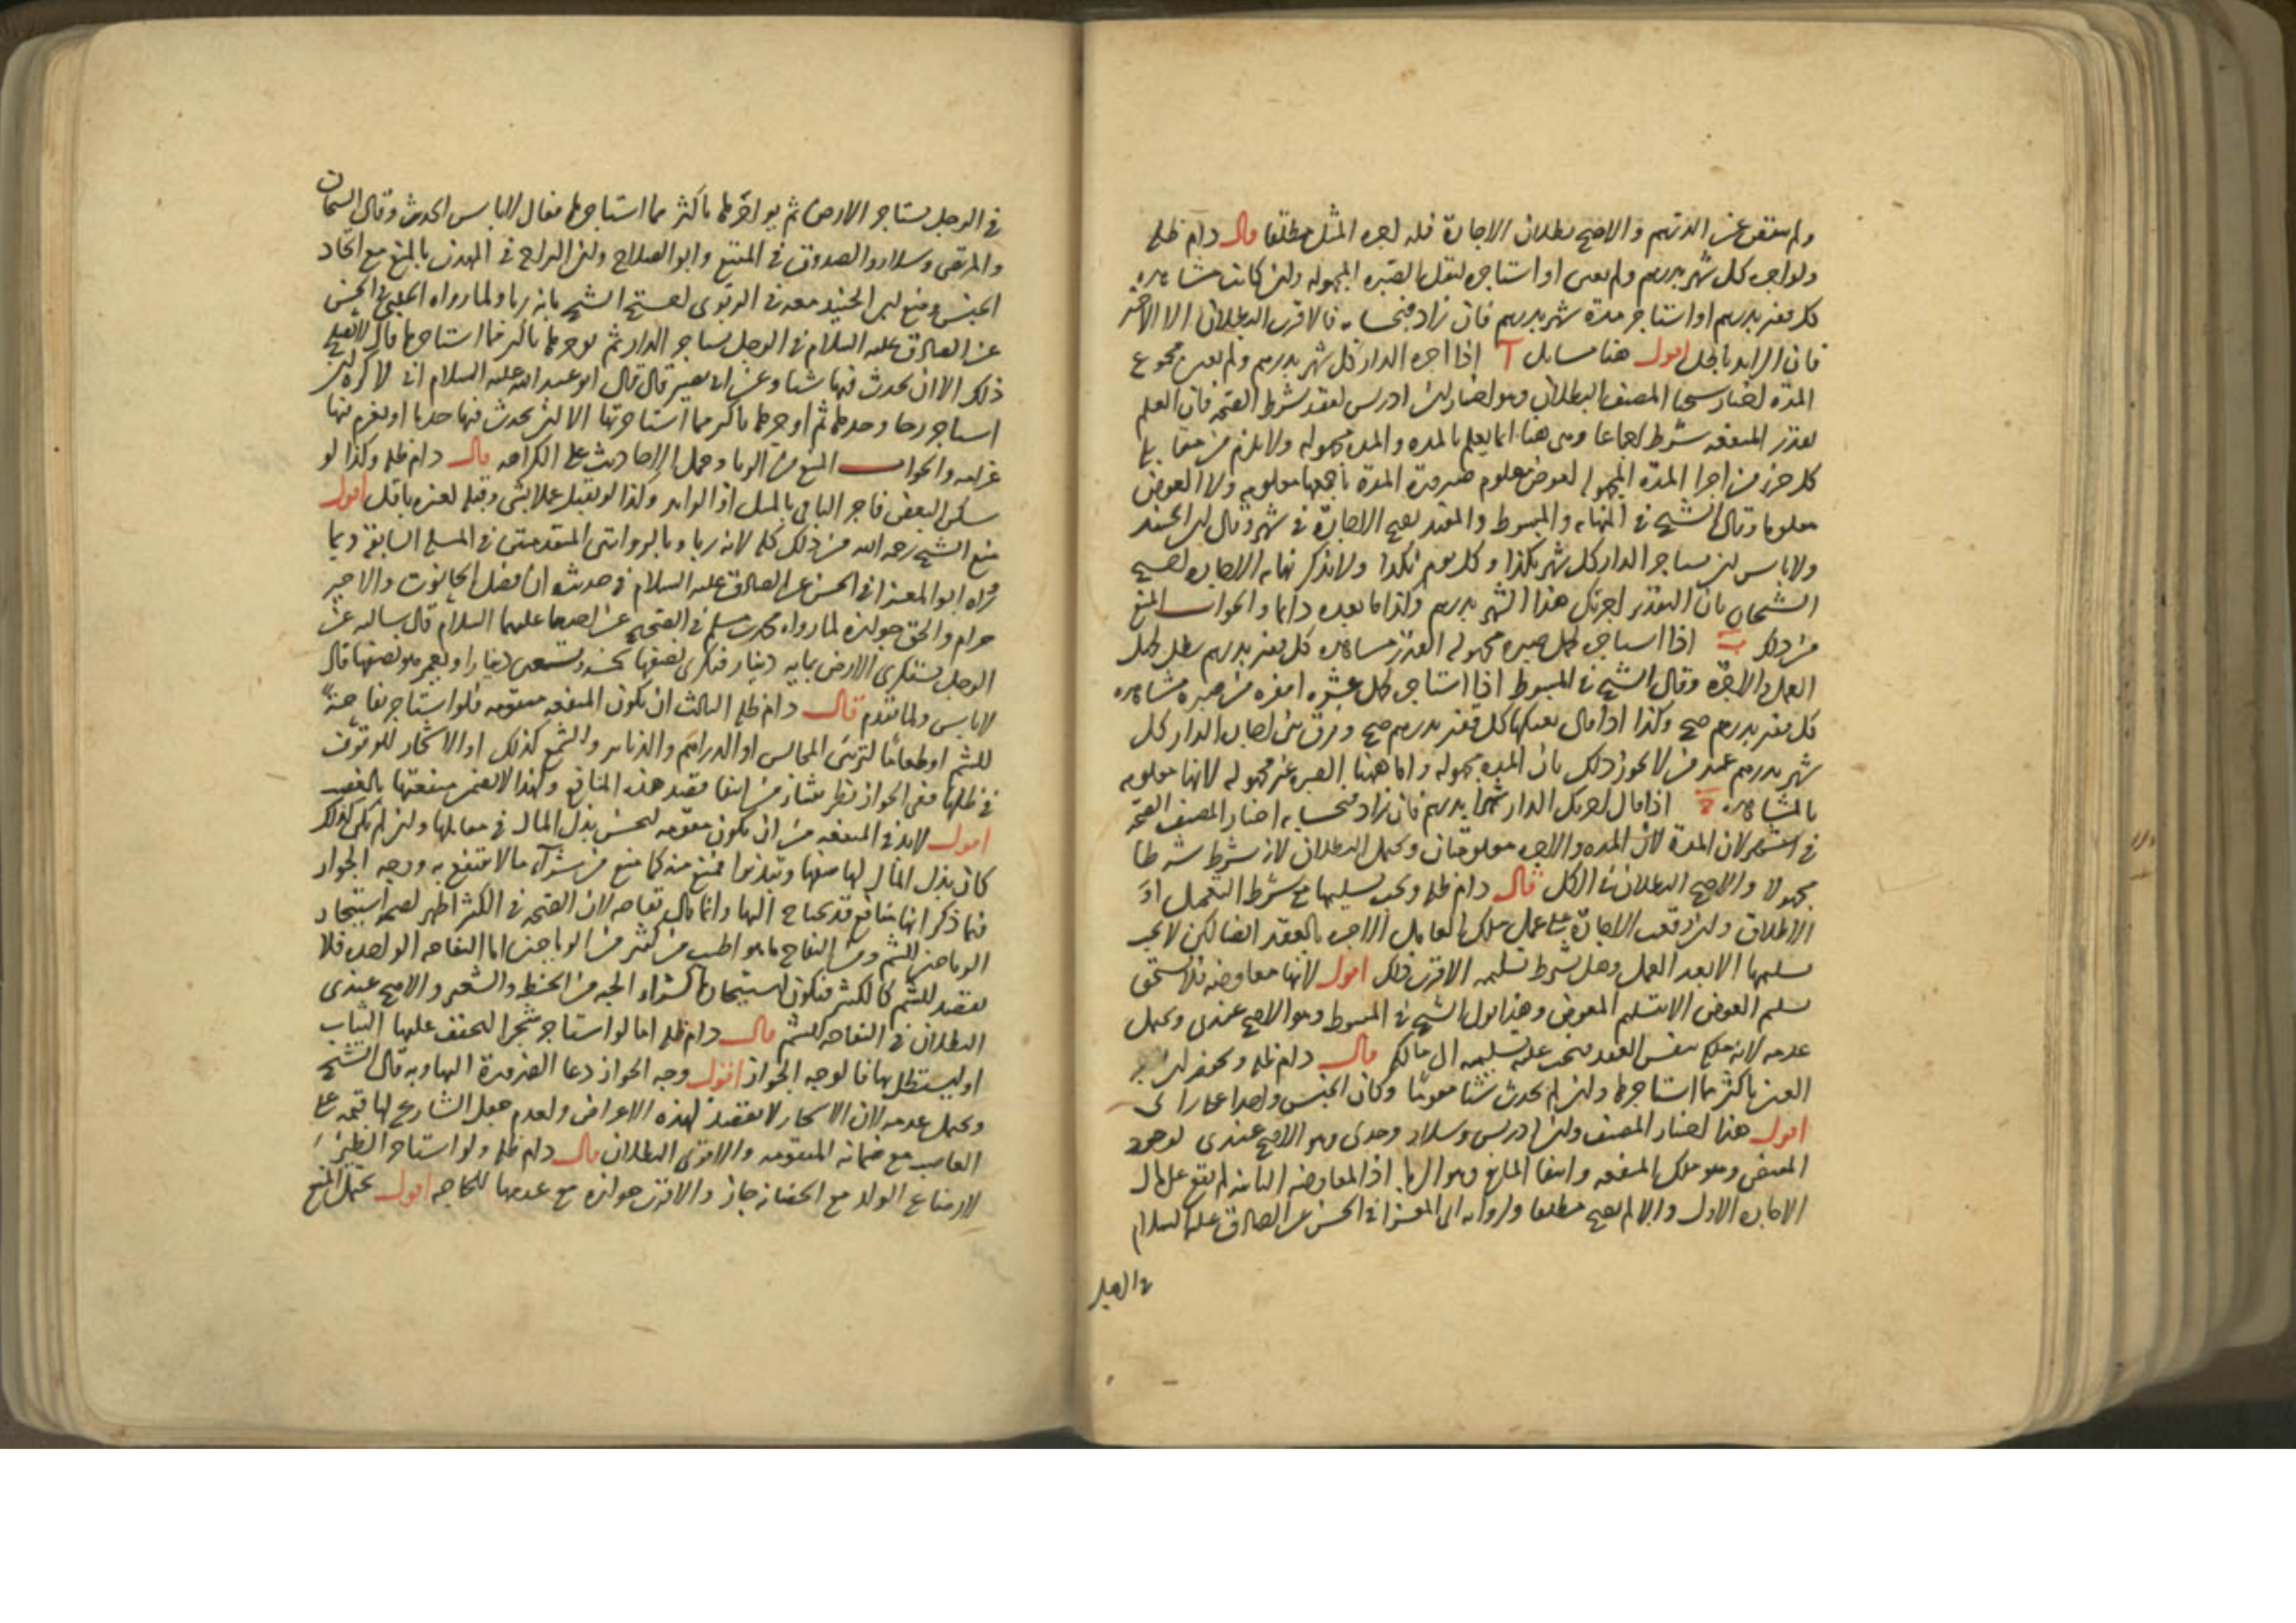 ولم ينقص عن الدرهم والاصح بطلان الاجارة فله اجرة المثل مطلقا قال دام ظله
ولو اجر كل شهر بدرهم ولم يعين او استاجره لنقل الصبرة المجهولة وان كانت مشاهدة
كل قفيز بدرهم او استاجر مدة شهر بدرهم فان زاد فبحسابه فالاقرب البطلان الا الاخير
فان الزايد باطل اقول هنا مسايل آ اذا اجره الدار كل شهر بدرهم ولم يعين مجموع
المدة اختيار شيخنا المصنف البطلان وهو اختيار ابن ادريس لفقد شرط الصحة فان العلم
بقدر المنفعة شرط اجماعا وهي هنا انما يعلم بالمدة والمدة مجهولة ولا يلزم من مقابلة
كل جزء من اجزا المدة المجهولة لعوض معلوم صيرورة المدة باجمعها معلومة ولا العوض
معلوما وقال الشيخ في النهاية والمبسوط والمفيد يصح الاجارة في شهر وقال ابن الجنيد
ولا باس ان يستاجر الدار كل شهر بكذا وكل يوم بكذا ولا يذكر نهاية الاجارة احتج
الشيخان بان التقدير اجرتك هذا الشهر بدرهم وكذا ما بعده دايما والجواب المنع
من ذلك ب اذا استاجره لحمل صبرة مجهولة القدر مشاهدة كل قفيز بدرهم بطل لجهل
العمل والاجرة وقال الشيخ في المبسوط اذا استاجره لحمل عشرة اقفزة من صبرة مشاهدة
كل قفيز بدرهم صح وكذا اذا قال بعتكها كل قفيز بدرهم صح وفرق بين اجارة الدار كل
شهر بدرهم عند من لا يجوز ذلك بان المدة مجهولة واما ههنا الصبرة غير مجهولة لانها معلومة
بالمشاهدة ج اذا قال اجرتك الدار شهرا بدرهم فان زاد فبحسابه اختار المصنف الصحة
في الشهر لان المدة لان المدة والاجرة معلومتان ويحتمل البطلان لانه شرط شرطا
مجهولا والاصح البطلان في الكل قال دام ظله ويجب تسليمها مع شرط التعجيل او
الاطلاق وان وقعت الاجارة على عمل ملك العامل الاجرة بالعقد ايضا لكن لا يجب
تسليمها الا بعد العمل وهل يشترط تسليمه الاقرب ذلك اقول لانها معاوضة فلا يستحق
تسليم العوض الا بتسليم المعوض وهذا قول الشيخ في المبسوط وهو الاصح عندي ويحتمل
عدمه لانه ملك بنفس العقد فيجب عليه تسليمه الى مالكه قال دام ظله ويجوز ان يوجر
العين باكثر مما استاجرها وان لم يحدث شيئا مقوما وكان الجنس واحدا على راى
اقول هذا اختيار المصنف وابن ادريس وسلار وجدي وهو الاصح عندي لوجود
المقتضي وهو ملك المنفعة وانتفا المانع وهو الربا اذ المعاوضة الثانية لم تقع على مال
الاجارة الاول والا لم يصح مطلقا ولرواية ابي المعزا في الحسن عن الصادق عليه السلام
في الرجل
في الرجل يستاجر الارض ثم يواجرها باكثر مما استاجرها فقال لا باس الحديث وقال الشيخان
والمرتضى وسلار والصدوق في المقنع وابو الصلاح وابن البراج في المهذب بالمنع مع اتحاد
الجنس ومنع ابن الجنيد معه في الربوي احتج الشيخ بانه ربا ولما رواه الحلبي في الحسن
عن الصادق عليه السلام في الرجل يستاجر الدار ثم يوجرها باكثر مما استاجرها قال لا يصلح
ذلك الا ان يحدث فيها شيئا وعن ابي بصير قال قال ابو عبد الله عليه السلام اني لا كره ان
استاجر رحا وحدها ثم اوجرها باكثر مما استاجرتها الا ان يحدث فيها حدثا او يغرم فيها
غرامة والجواب المنع من الربا وحمل الاحاديث على الكراهه قال دام ظله وكذا لو
سكن البعض فاجر الباقي بالمثل او الزايد وكذا لو تقبل عملا بشي وقبله لغيره باقل اقول
منع الشيخ رحمه الله من ذلك كله لانه ربا وبالروايتين المتقدمتين في المسلة السابقة وبما
رواه ابو المعزا في الحسن عن الصادق عليه السلام في حديث ان فضل الحانوت والاجير
حرام والحق جوازه لما رواه محمد بن مسلم في الصحيح عن احدهما عليهما السلام قال سالته عن
الرجل يستكري الارض بماية دينار فيكري نصفها بخمسة وتسعين دينارا ويعمر هو نصفها قال
لا باس ولما تقدم قال دام ظله الثالث ان يكون المنفعة متقومة فلو استاجر تفاحة
للشم او طعاما لتزيين المجالس او الدراهم والدنانير والشمع كذلك او الاشجار للوقوف
في ظلها ففي الجواز نظر ينشا من انتفا قصد هذه المنافع ولهذا لا يضمن منفعتها بالغصب
اقول لا بد في المنفعة من ان يكون متقومة ليحسن بذل المال في مقابلها وان لم يكن كذلك
كان بذل المال لها سفها وتبذيرا فمنع منه كما منع من شراء ما لا ينتفع به ووجه الجواز
فيما ذكر انها منافع قد يحتاج اليها وانما قال تفاحة لان الصحة في الكثير اظهر لصحة استيجار
الرياحين للشم ومن التفاح ما هو اطيب من كثير من الرياحين اما التفاحة الواحدة فلا
تقصد للشم كالكثير فيكون استيجارها كشراء الحبة من الحنطة والشعير والاصح عندي
البطلان في التفاحة للشم قال دام ظله اما لو استاجر شجرا ليجفف عليها الثياب
او ليستظل بها فالوجه الجواز اقول وجه الجواز دعا الضرورة اليها وبه قال الشيخ
ويحتمل عدمه لان الاشجار لا يقصد لهذه الاعراض ولعدم جعل الشارع لها قيمة على
الغاصب مع ضمانه المتقومة والاقوى البطلان قال دام ظله ولو استاجر الظئر
لارضاع الولد مع الحضانة جاز والاقرب جوازه مع عدمها للحاجة اقول يحتمل المنع